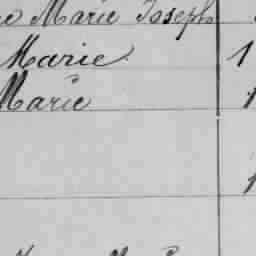 Marie Joseph
Marie 1
Marie 1
1